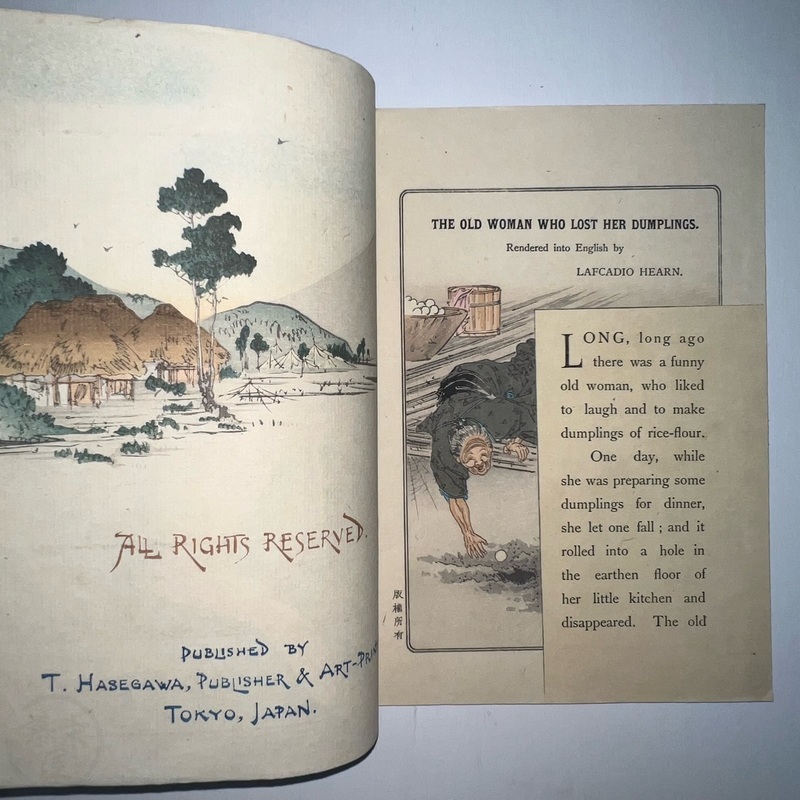 ALL RIGHTS RESERVED.
PUBLISHED BY
T. HASEGAWA, PUBLISHER & ART-PRIN
TOKYO, JAPAN.
THE OLD WOMAN WHO LOST HER DUMPLINGS.
Rendered into English by
LAFCADIO HEARN.
LONG, long ago
there was a funny
old woman, who liked
to laugh and to make
dumplings of rice-flour.
One day, while
she was preparing some
dumplings for dinner,
she let one fall ; and it
rolled into a hole in
the earthen floor of
her little kitchen and
disappeared. The old
版權所有